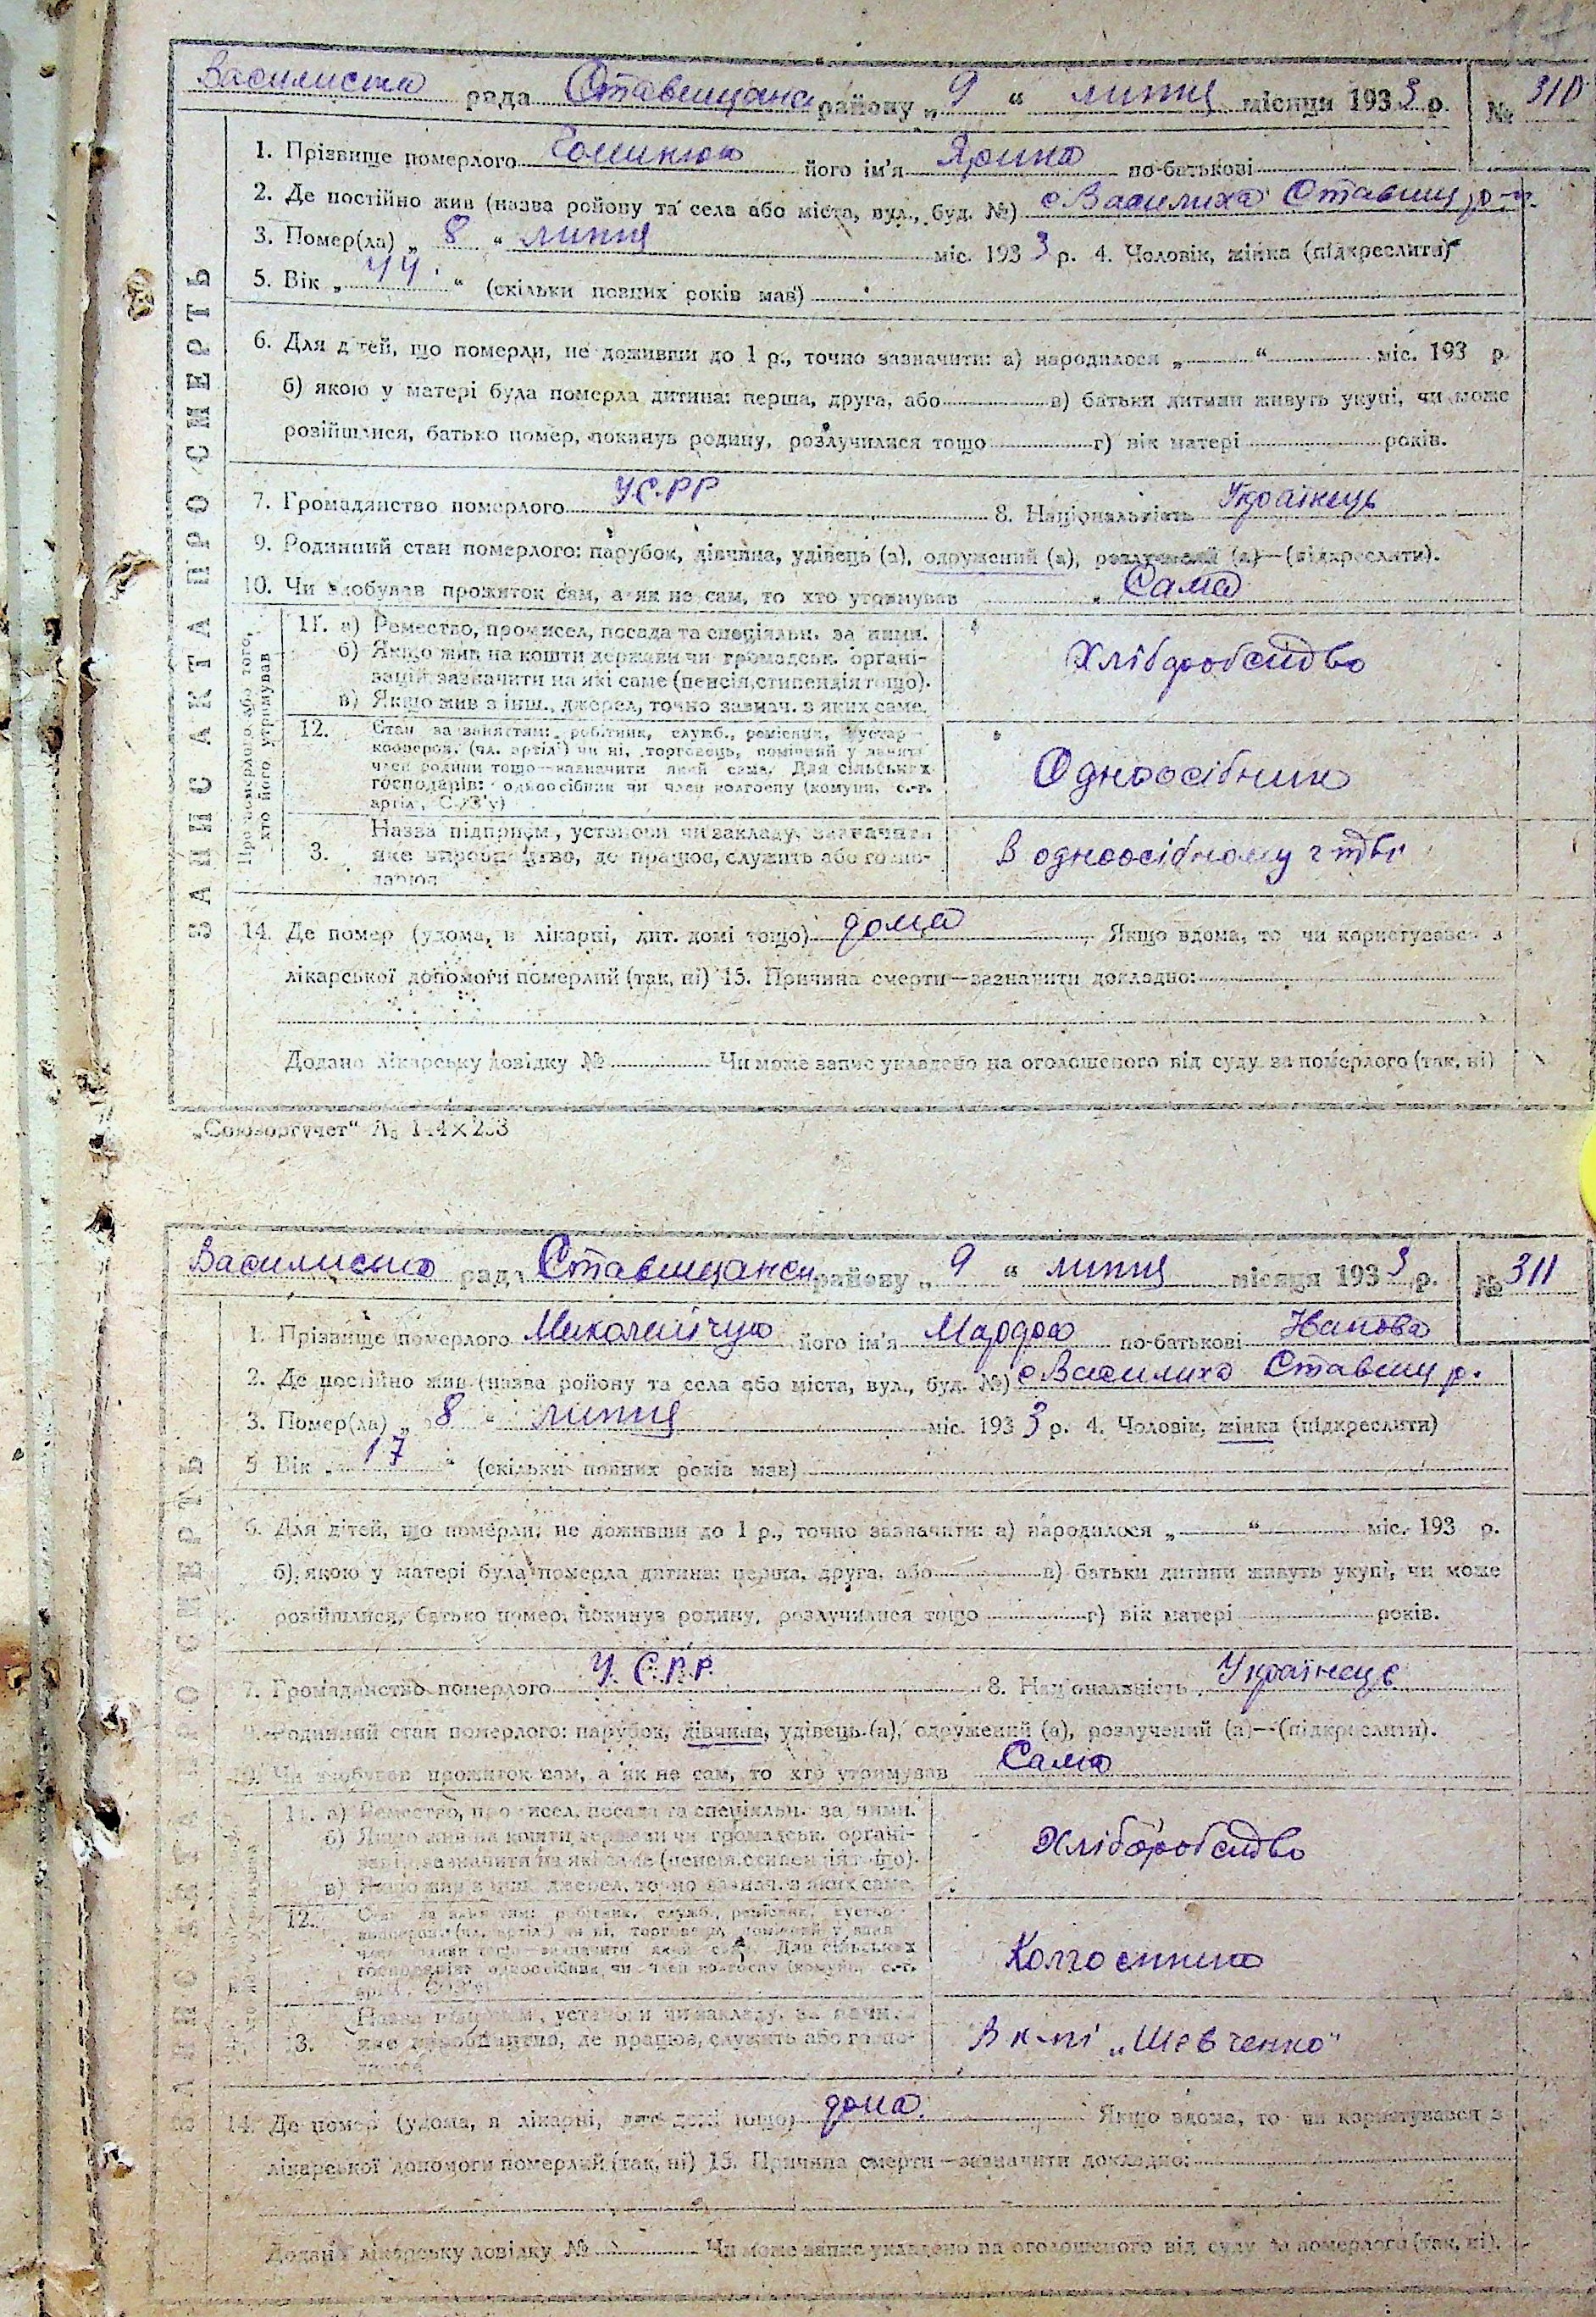 рада Ставищанськ району „ 9 “ липня місяця 1933 р. № 310
1. Прізвище померлого його ім'я Ярина по-батькові
2. Де постійно жив (назваройону та села або міста, вул., буд. №) с Василиха Ставищ р-н.
3. Помер(ла) „ 8 “ липня міс. 1933 р. 4. Чоловік, жінка (підкреслити)
5. Вік „ 44. “ (скільки повних років мав)
6. Для дітей, що померли, не доживши до 1 р., точно зазначити: а) народилося „ “ міс. 193 р.
б) якою у матері була померла дитина: перша, друга, або в) батьки дитини живуть укупі, чи може
розійшлися, батько помер, покинув родину, розлучилися тощо г) вік матері років.
7. Громадянство померлого УСРР 8. Національність Українець
9. Родинний стан померлого: парубок, дівчина, удівець (а), одружений (а), розлучений (а)—(підкреслити).
10. Чи здобував прожиток сам, а як не сам, то хто утримував Сама
ЗАПИС АКТА ПРО СМЕРТЬ
Про померлого, або того,
хто його утримував
11. а) Ремество, промисел, посада та спеціяльн. за ними.
б) Якщо жив на кошти держави чи громадськ. органі-
зацій, зазначити на які саме (пенсія, стипендія тощо).
в) Якщо жив з інш., джерел, точно зазнач. з яких саме.
Хліборобство
12. Стан за заняттям: робітник, служб., ремісник, кустар-
кооперов. (чл. артілі) чи ні, торговець, помічний у занятт
член родини тощо—зазначити який саме. Для сільських
господарів: одноосібник чи член колгоспу (комуни, с.-г.
артіл., СОЗ'у)
Одноосібник
3. Назва підприєм., установи чи закладу, зазначити
яке виробництво, де працює, служить або госпо-
дарює
В одноосібному г-тві
14. Де помер (удома, в лікарні, дит. домі тощо) дома Якщо вдома, то чи користувався з
лікарської допомоги померлий (так, ні) 15. Причина смерти—зазначити докладно:
Додано лікарську довідку № Чи може запис укладено на оголошеного від суду за померлого (так, ні)
„Союзоргучет“
рада Ставищанськ району „ 9 “ липня місяця 1933 р. № 311
1. Прізвище померлого Миколайчук його ім'я по-батькові
2. Де постійно жив (назва ройону та села або міста, вул., буд. №) с Василиха Ставищ р.
3. Помер(ла) „ 8 “ липня міс. 1933 р. 4. Чоловік, жінка (підкреслити)
5 Вік „ 17 “ (скільки повних років мав)
6. Для дітей, що померли, не доживши до 1 р., точно зазначити: а) народилося „ “ міс. 193 р.
б) якою у матері була померла дитина: перша, друга, або в) батьки дитини живуть укупі, чи може
розійшлися, батько помер, покинув родину, розлучилися тощо г) вік матері років.
7. Громадянство померлого У.С.Р.Р. 8. Національність Українець
9. Родинний стан померлого: парубок, дівчина, удівець (а), одружений (а), розлучений (а)—(підкреслити).
10. Чи здобував прожиток сам, а як не сам, то хто утримував Сама
11. а) Ремество, промисел, посада та спеціяльн. за ними.
б) Якщо жив на кошти держави чи громадськ. органі-
зацій, зазначити на які саме (пенсія, стипендія тощо).
в) Якщо жив з інш. джерел, точно зазнач. з яких саме.
Хліборобство
12.
Колгоспник
3. Назва підприєм., установи чи закладу, зазначити
яке виробництво, де працює, служить або госпо-
В к-пі „Шевченко“
14. Де помер (удома, в лікарні, дит. домі тощо) дома. Якщо вдома, то чи користувався з
лікарської допомоги померлий (так, ні) 15. Причина смерти—зазначити докладно:
Додано лікарську довідку № Чи може запис укладено на оголошеного від суду за померлого (так, ні).